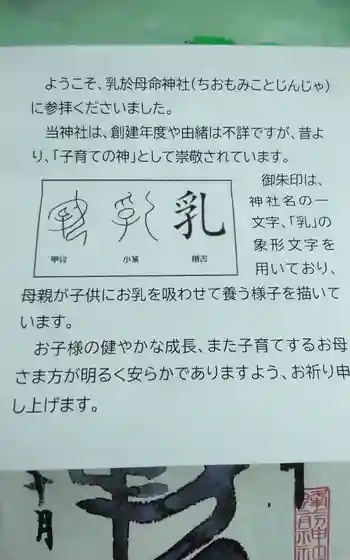 ようこそ、乳於母命神社(ちおもみことじんじゃ)
に参拝くださいました。
当神社は、創建年度や由緒は不詳ですが、昔よ
り、「子育ての神」として崇敬されています。
御朱印は、
神社名の一
文字、「乳」の
象形文字を
用いており、
乳
甲骨
小篆
楷書
母親が子供にお乳を吸わせて養う様子を描いて
います。
お子様の健やかな成長、また子育てするお母
さま方が明るく安らかでありますよう、お祈り申
し上げます。
十月